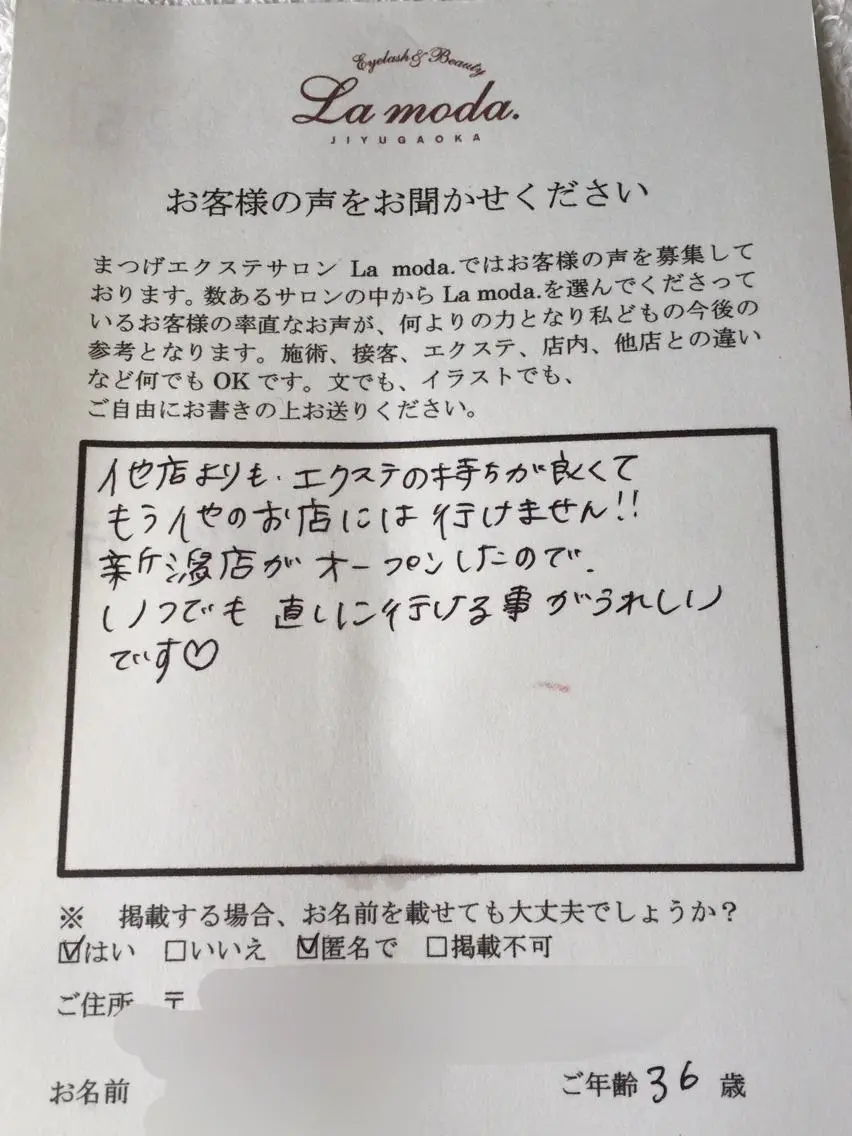 Eyelash & Beauty
La moda.
JIYUGAOKA
お客様の声をお聞かせください
まつげエクステサロン La moda.ではお客様の声を募集して
おります。数あるサロンの中から La moda.を選んでくださって
いるお客様の率直なお声が、何よりの力となり私どもの今後の
参考となります。施術、接客、エクステ、店内、他店との違い
など何でも OK です。文でも、イラストでも、
ご自由にお書きの上お送りください。
他店よりも、エクステの持ちが良くて
もう他のお店には行けません!!
新潟店がオープンしたので、
いつでも直ぐに行ける事がうれしい
です♡
※ 掲載する場合、お名前を載せても大丈夫でしょうか?
☑はい □いいえ ☑匿名で □掲載不可
ご住所 〒
お名前 ご年齢 36 歳